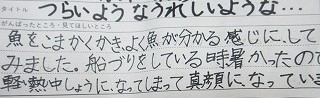 タイトル つらいようなうれしいような…
がんばったところ・見てほしいところ
魚をこまかくかき、よく魚が分かる感じに、して
みました。船づりをしている時暑かったので
軽い熱中しょうに、なってしまって真顔に、なっている